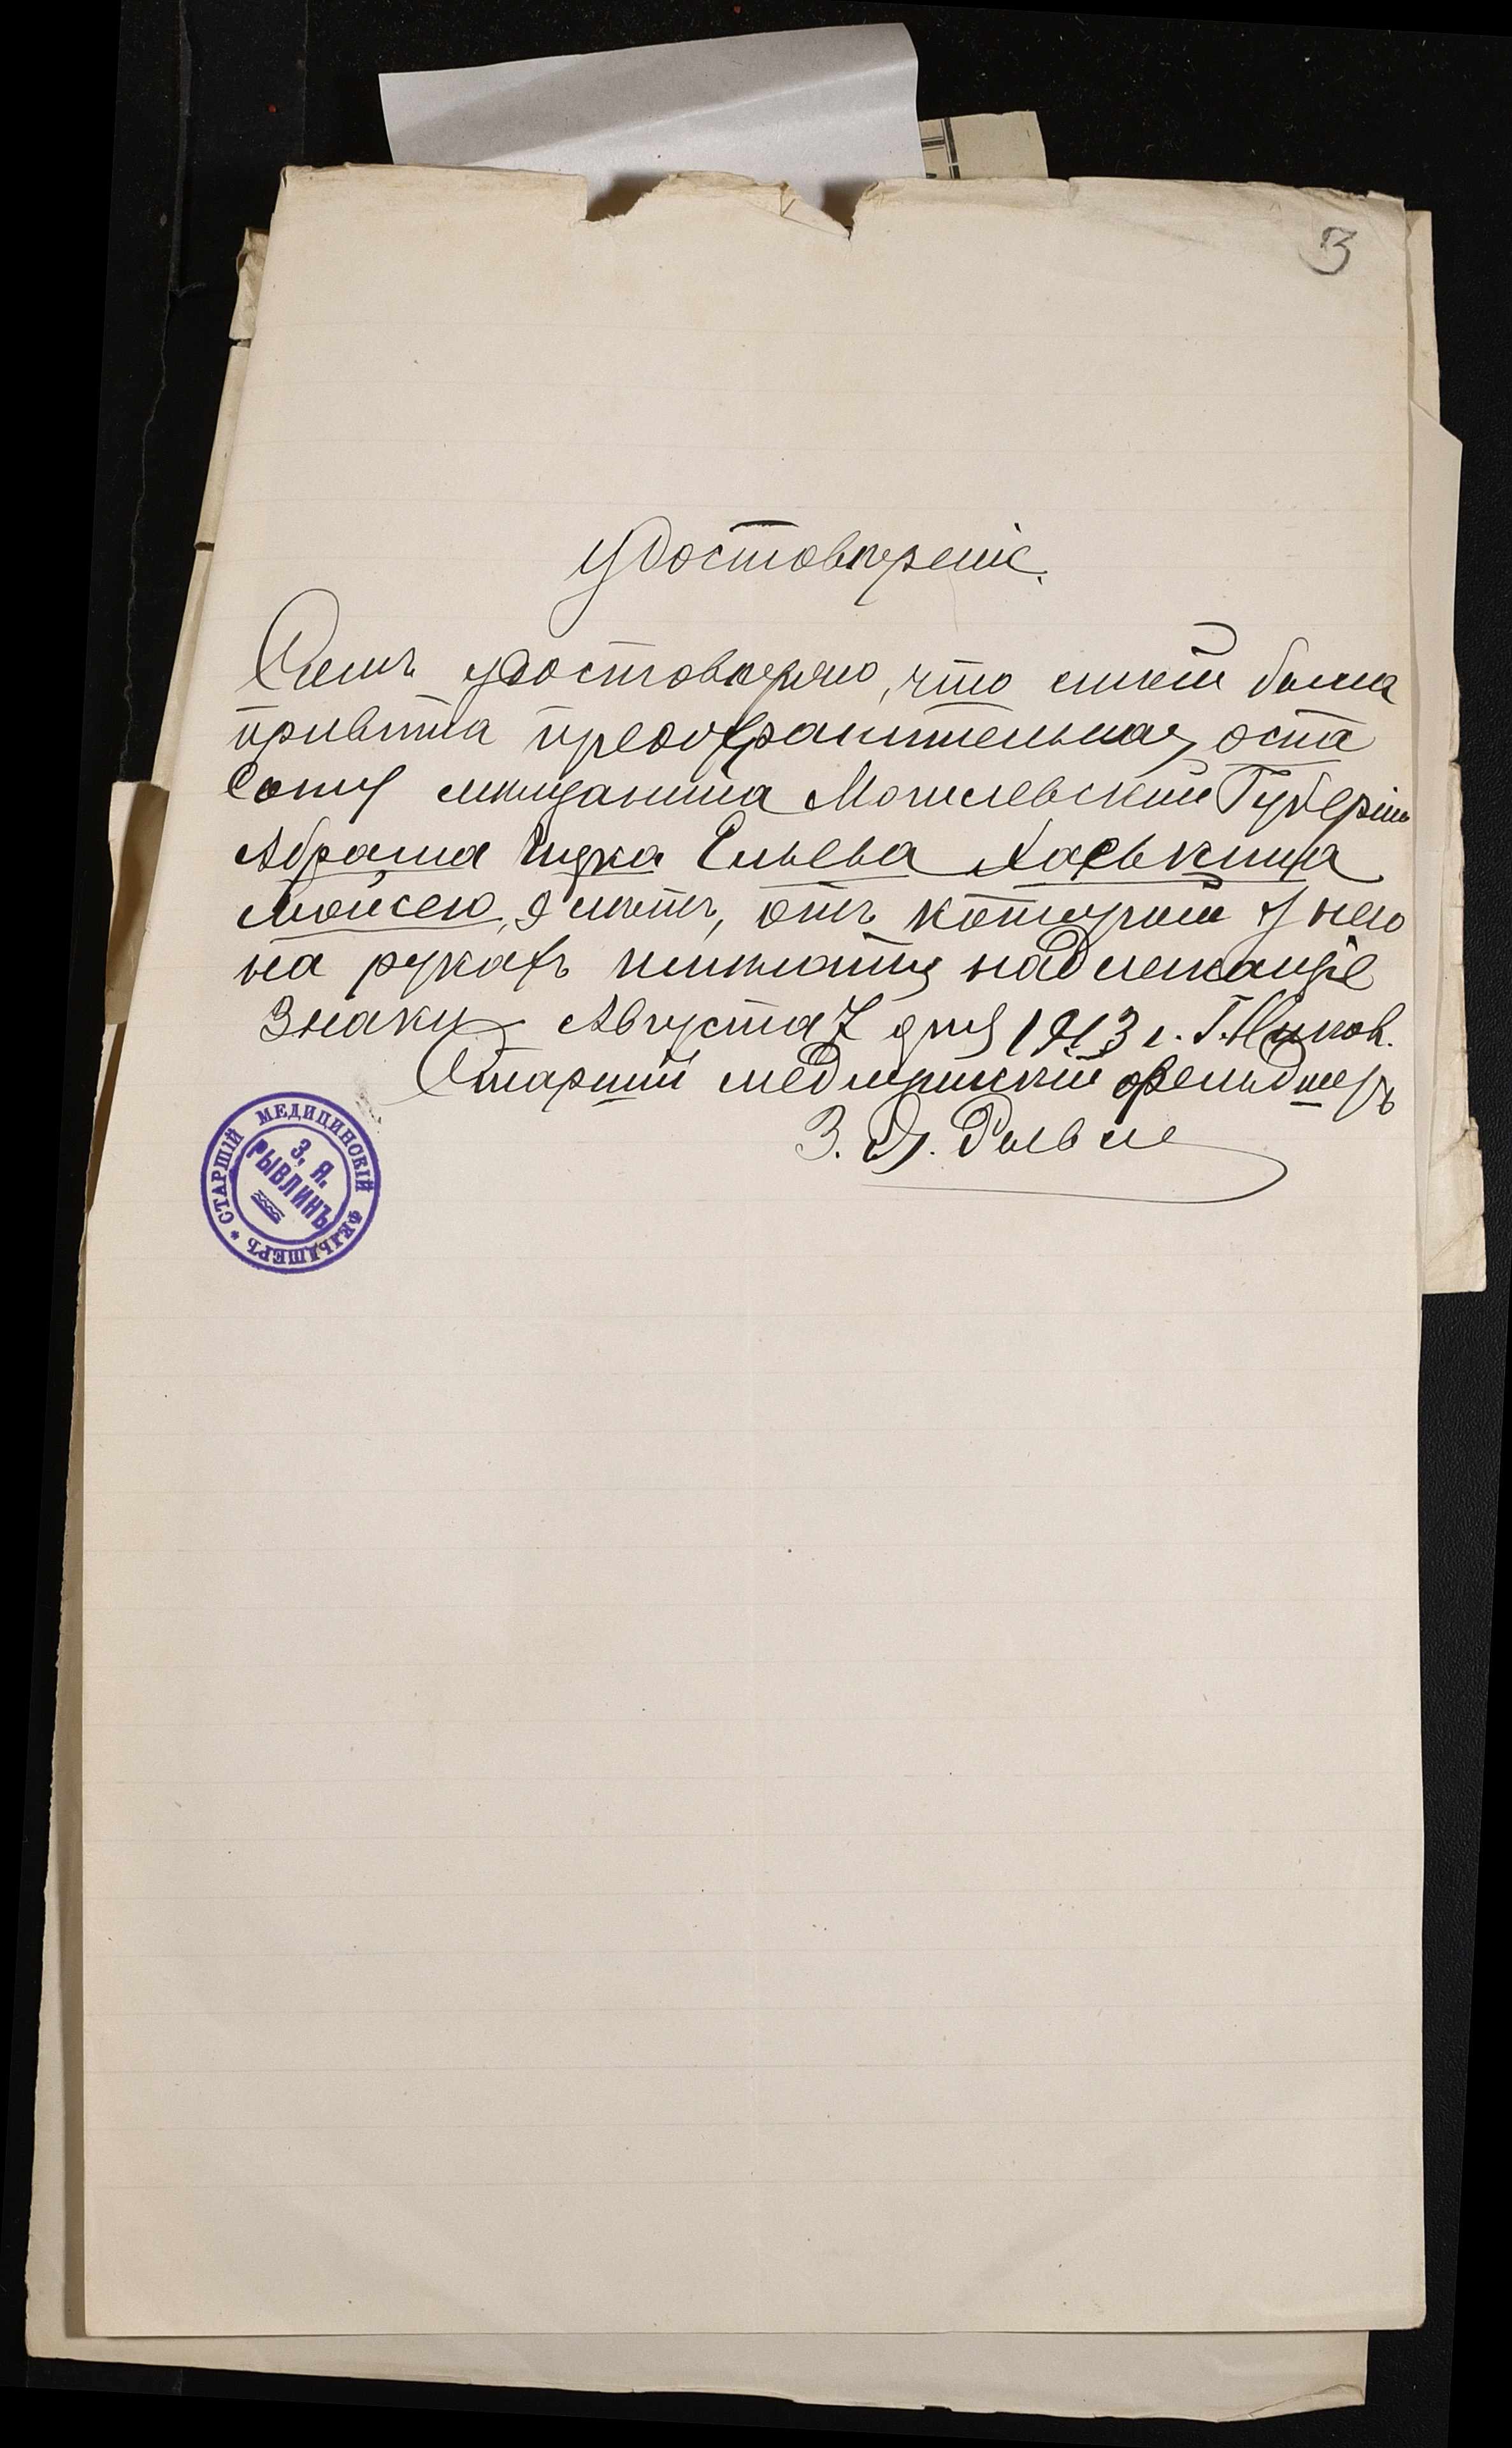 3
Удостовѣреніе.
Симъ удостовѣряю, что мною была
привита предохранительная оспа
сыну мѣщанина Могилевской Губерніи
Абрама Ицка Ельева Хаськина
Мойсею, 9 лѣтъ, отъ которой у него
на рукахъ имѣются надлежащіе
знаки Августа 7 дня 1913 г. Г.
Старшій медицинскій фельдшеръ
З. Я. Рывли
СТАРШІЙ МЕДИЦИНСКІЙ ФЕЛЬДШЕРЪ *
З. Я.
РЫВЛИНЪ